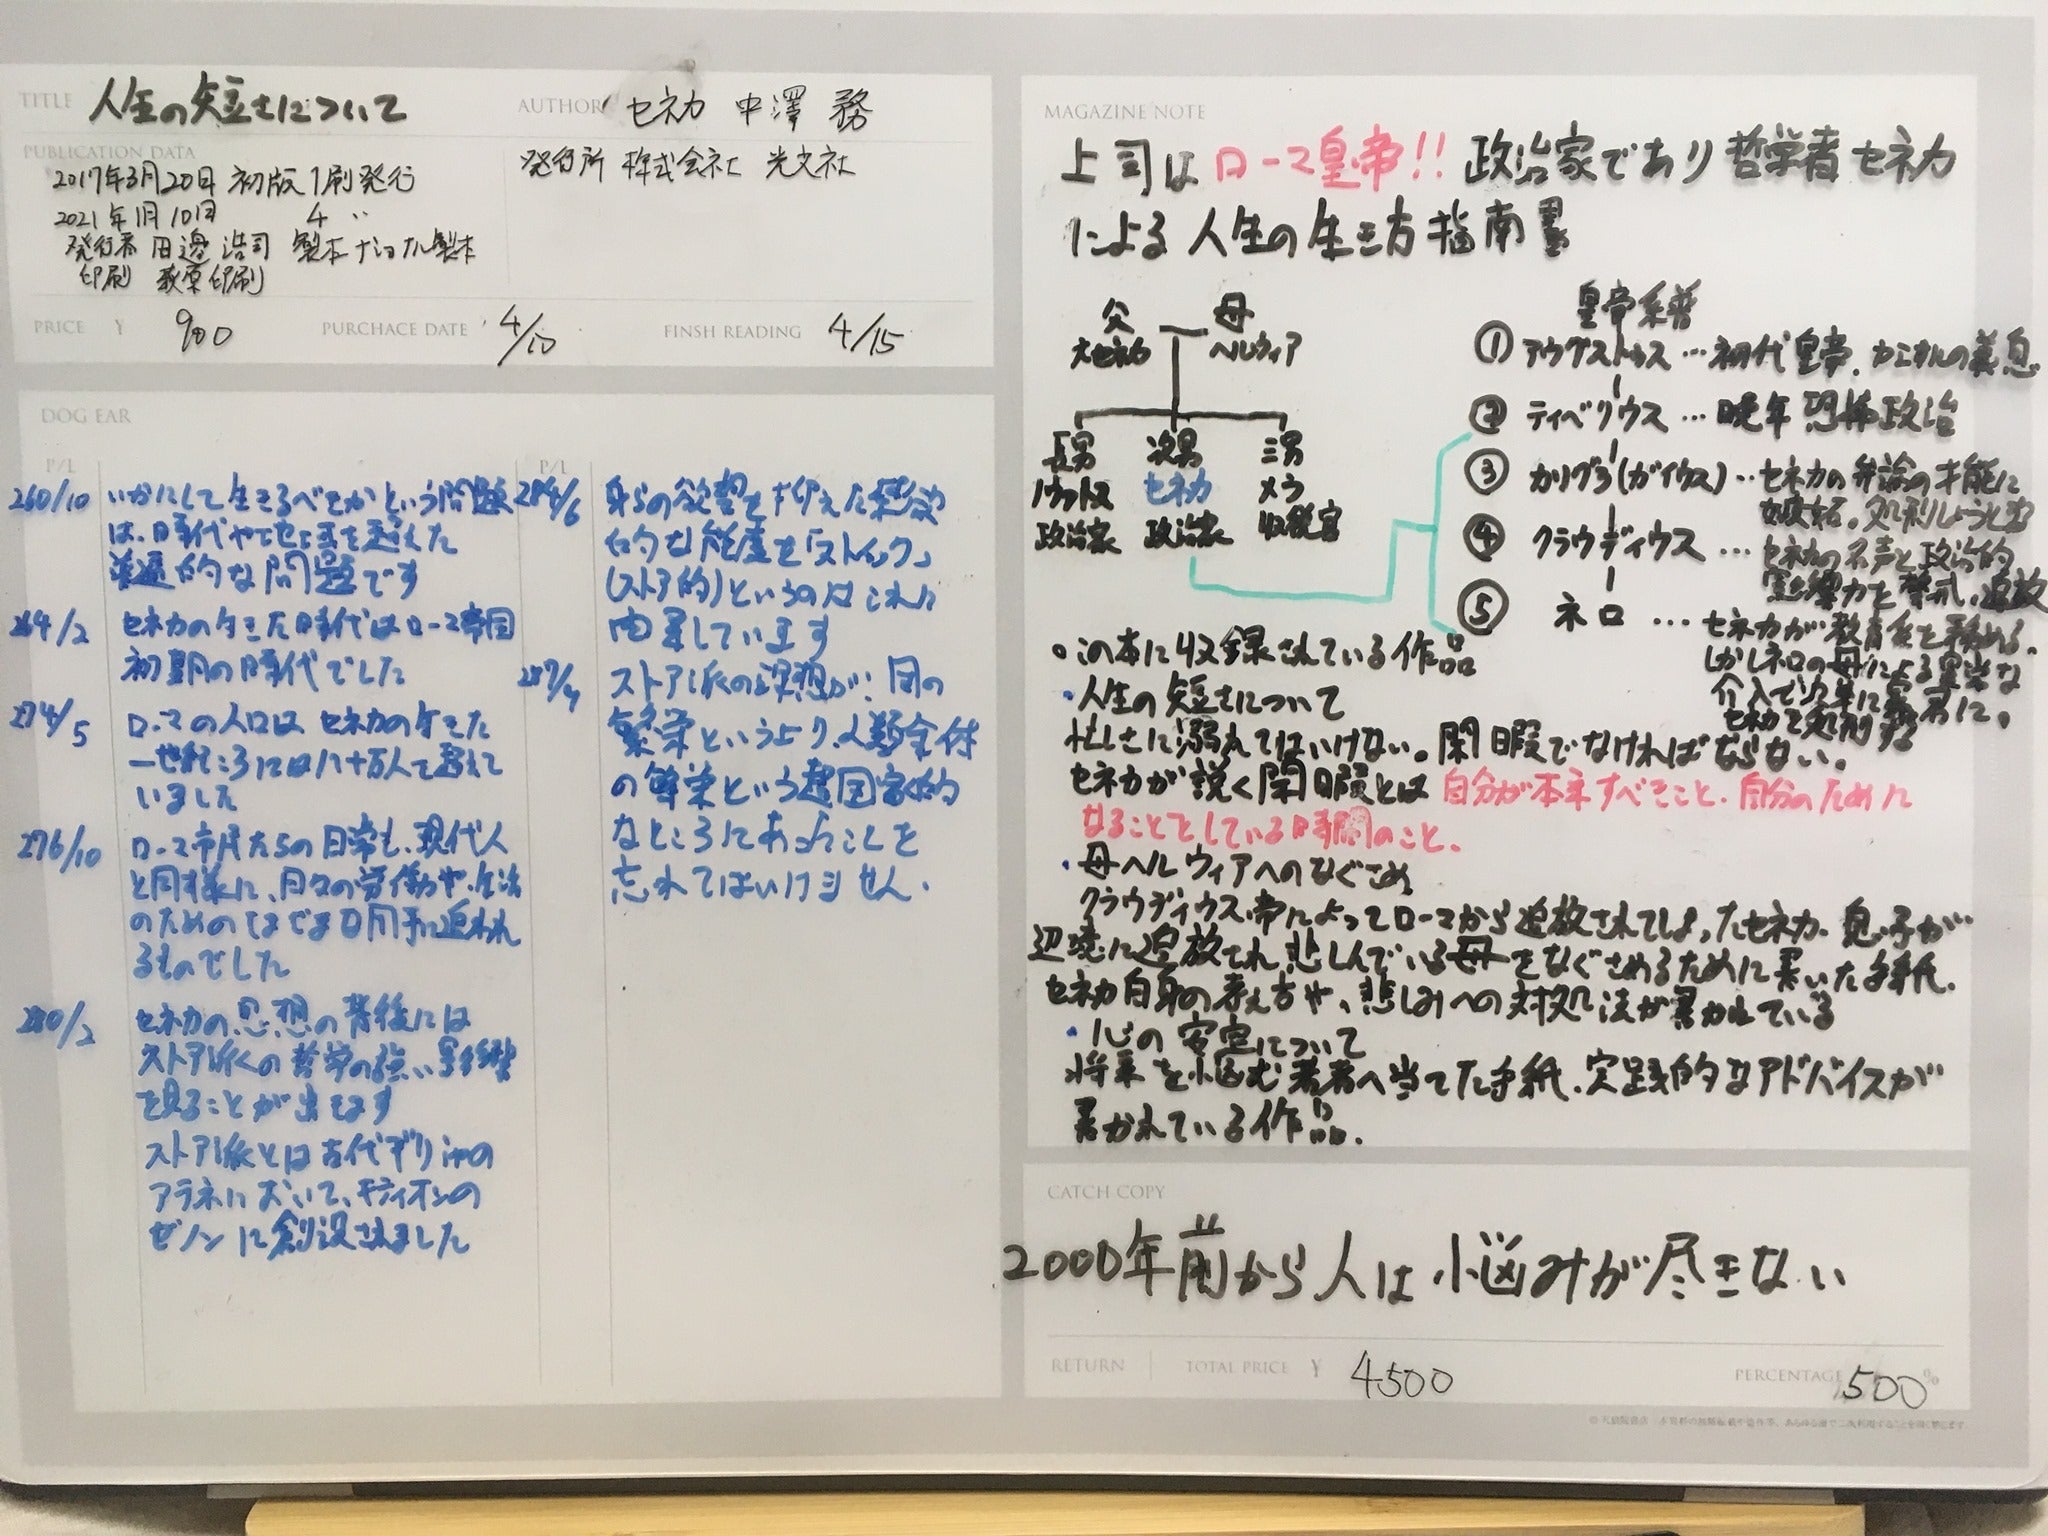 TITLE 人生の短さについて
AUTHOR セネカ 中澤 務
PUBLICATION DATA
2017年3月20日 初版1刷発行
2021年1月10日 4 〃
発行者 田邉 浩司 製本 ナショナル製本
印刷 萩原印刷
発行所 株式会社 光文社
PRICE ¥ 900
PURCHACE DATE 4/10
FINSH READING 4/15
DOG EAR
P/L
260/10 いかにして生きるべきかという問題
は、時代や地域を超えた
普遍的な問題です
264/2 セネカの生きた時代はローマ帝国
初期の時代でした
274/5 ローマの人口はセネカの生きた
一世紀ころには八十万人を超えて
いました
276/10 ローマ市民たちの日常も、現代人
と同様に、日々の労働や、生活
のための
るものでした
280/2 セネカの思想の背後には
ストア派の哲学の強い影響
を見ることが出きます
ストア派とは古代ギリシャの
アテネにおいて、キティオンの
ゼノンに創設されました
P/L
284/6 自らの欲望を抑えた禁欲
的な態度を「ストイック」
(ストア的)というのはこれに
由来しています
287/4 ストア派の理想が、国の
繁栄というより、人類全体
の繁栄という超国家的
なところにあったことを
忘れてはいけません.
MAGAZINE NOTE
上司はローマ皇帝!! 政治家であり哲学者セネカ
による人生の生き方指南書
父 母
大セネカ ヘルウィア
長男 次男 三男
ノウァトゥス セネカ メラ
政治家 政治家 収税官
皇帝系譜
① アウグストゥス … 初代皇帝. カエサルの養息
② ティベリウス … 晩年 恐怖政治
③ カリグラ(ガイウス) … セネカの弁論の才能に
嫉妬。処刑しようと
④ クラウディウス … セネカの名声と政治的
影響力を警戒、追放
⑤ ネロ … セネカが教育係を務める。
しかしネロの母による
介入で次第に暴君に。
セネカを処刑する
。この本に収録されている作品
・人生の短さについて
忙しさに溺れてはいけない。閑暇でなければならない。
セネカが説く閑暇とは自分が本来すべきこと、自分のために
なることをしている時間のこと.
・母ヘルウィアへのなぐさめ
クラウディウス帝によってローマから追放されてしまったセネカ. 息子が
辺境に追放され悲しんでいる母をなぐさめるために書いた手紙.
セネカ自身の考え方や、悲しみへの対処法が書かれている
・心の安定について
将来を悩む若者へ当てた手紙. 実践的なアドバイスが
書かれている作品.
CATCH COPY
2000年前から人は悩みが尽きない
RETURN TOTAL PRICE ¥ 4500
PERCENTAGE 500 %